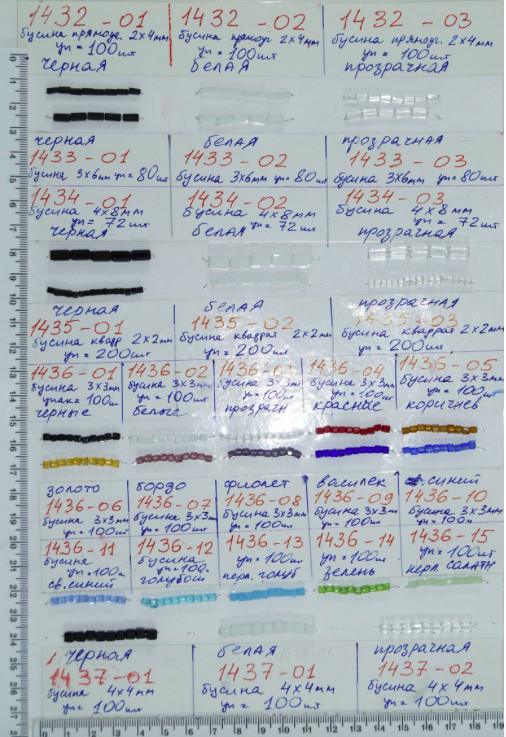 1432-01
бусина прямоуг. 2x4мм
уп = 100шт
чЕРНАЯ
1432-02
бусина прямоуг 2x4мм
уп = 100шт
бЕЛАЯ
1432-03
бусина прямоуг. 2x4мм
уп = 100шт
прозрАчНАЯ
чЕРНАЯ
1433-01
бусина 3x6мм уп = 80шт
бЕЛАЯ
1433-02
бусина 3x6мм уп = 80шт
прозрАчНАЯ
1433-03
бусина 3x6мм уп = 80шт
1434-01
бусина 4x8мм
уп = 72шт
чЕРНАЯ
1434-02
бусина 4x8мм
уп = 72шт
бЕЛАЯ
1434-03
бусина 4x8мм
уп = 72шт
прозрАчНАЯ
чЕРНАЯ
1435-01
бусина квадр 2x2мм
уп = 200шт
бЕЛАЯ
1435-02
бусина квадрат 2x2мм
уп = 200шт
прозрАчНАЯ
1435-03
бусина квадрат 2x2мм
уп = 200шт
1436-01
бусина 3x3мм
упак = 100шт
чЕРНЫЕ
1436-02
бусина 3x3мм
уп = 100шт
бЕЛЫЕ
1436-03
бусина 3x3мм
уп = 100шт
прозрАчН
1436-04
бусина 3x3мм
уп = 100шт
КРАСНЫЕ
1436-05
бусина 3x3мм
уп = 100шт
КОРИЧНЕВ
золото
1436-06
бусина 3x3мм
уп = 100шт
бордо
1436-07
бусина 3x3мм
уп = 100шт
фиолЕТ
1436-08
бусина 3x3мм
уп = 100шт
василЕК
1436-09
бусина 3x3мм
уп = 100шт
синий
1436-10
бусина 3x3мм
уп = 100шт
1436-11
бусина
уп = 100шт
св. синий
1436-12
бусина
уп = 100
голубой
1436-13
уп = 100шт
перл. голуб
1436-14
уп = 100шт
зЕЛЕНЬ
1436-15
уп = 100шт
перл. САЛАТН
чЕРНАЯ
1437-01
бусина 4x4мм
уп = 100шт
бЕЛАЯ
1437-01
бусина 4x4мм
уп = 100шт
прозрАчНАЯ
1437-02
бусина 4x4мм
уп = 100шт